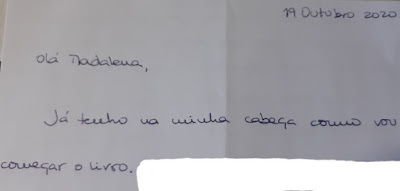 19 Outubro 2020
Olá Madalena,
Já tenho na minha cabeça como vou
começar o livro.